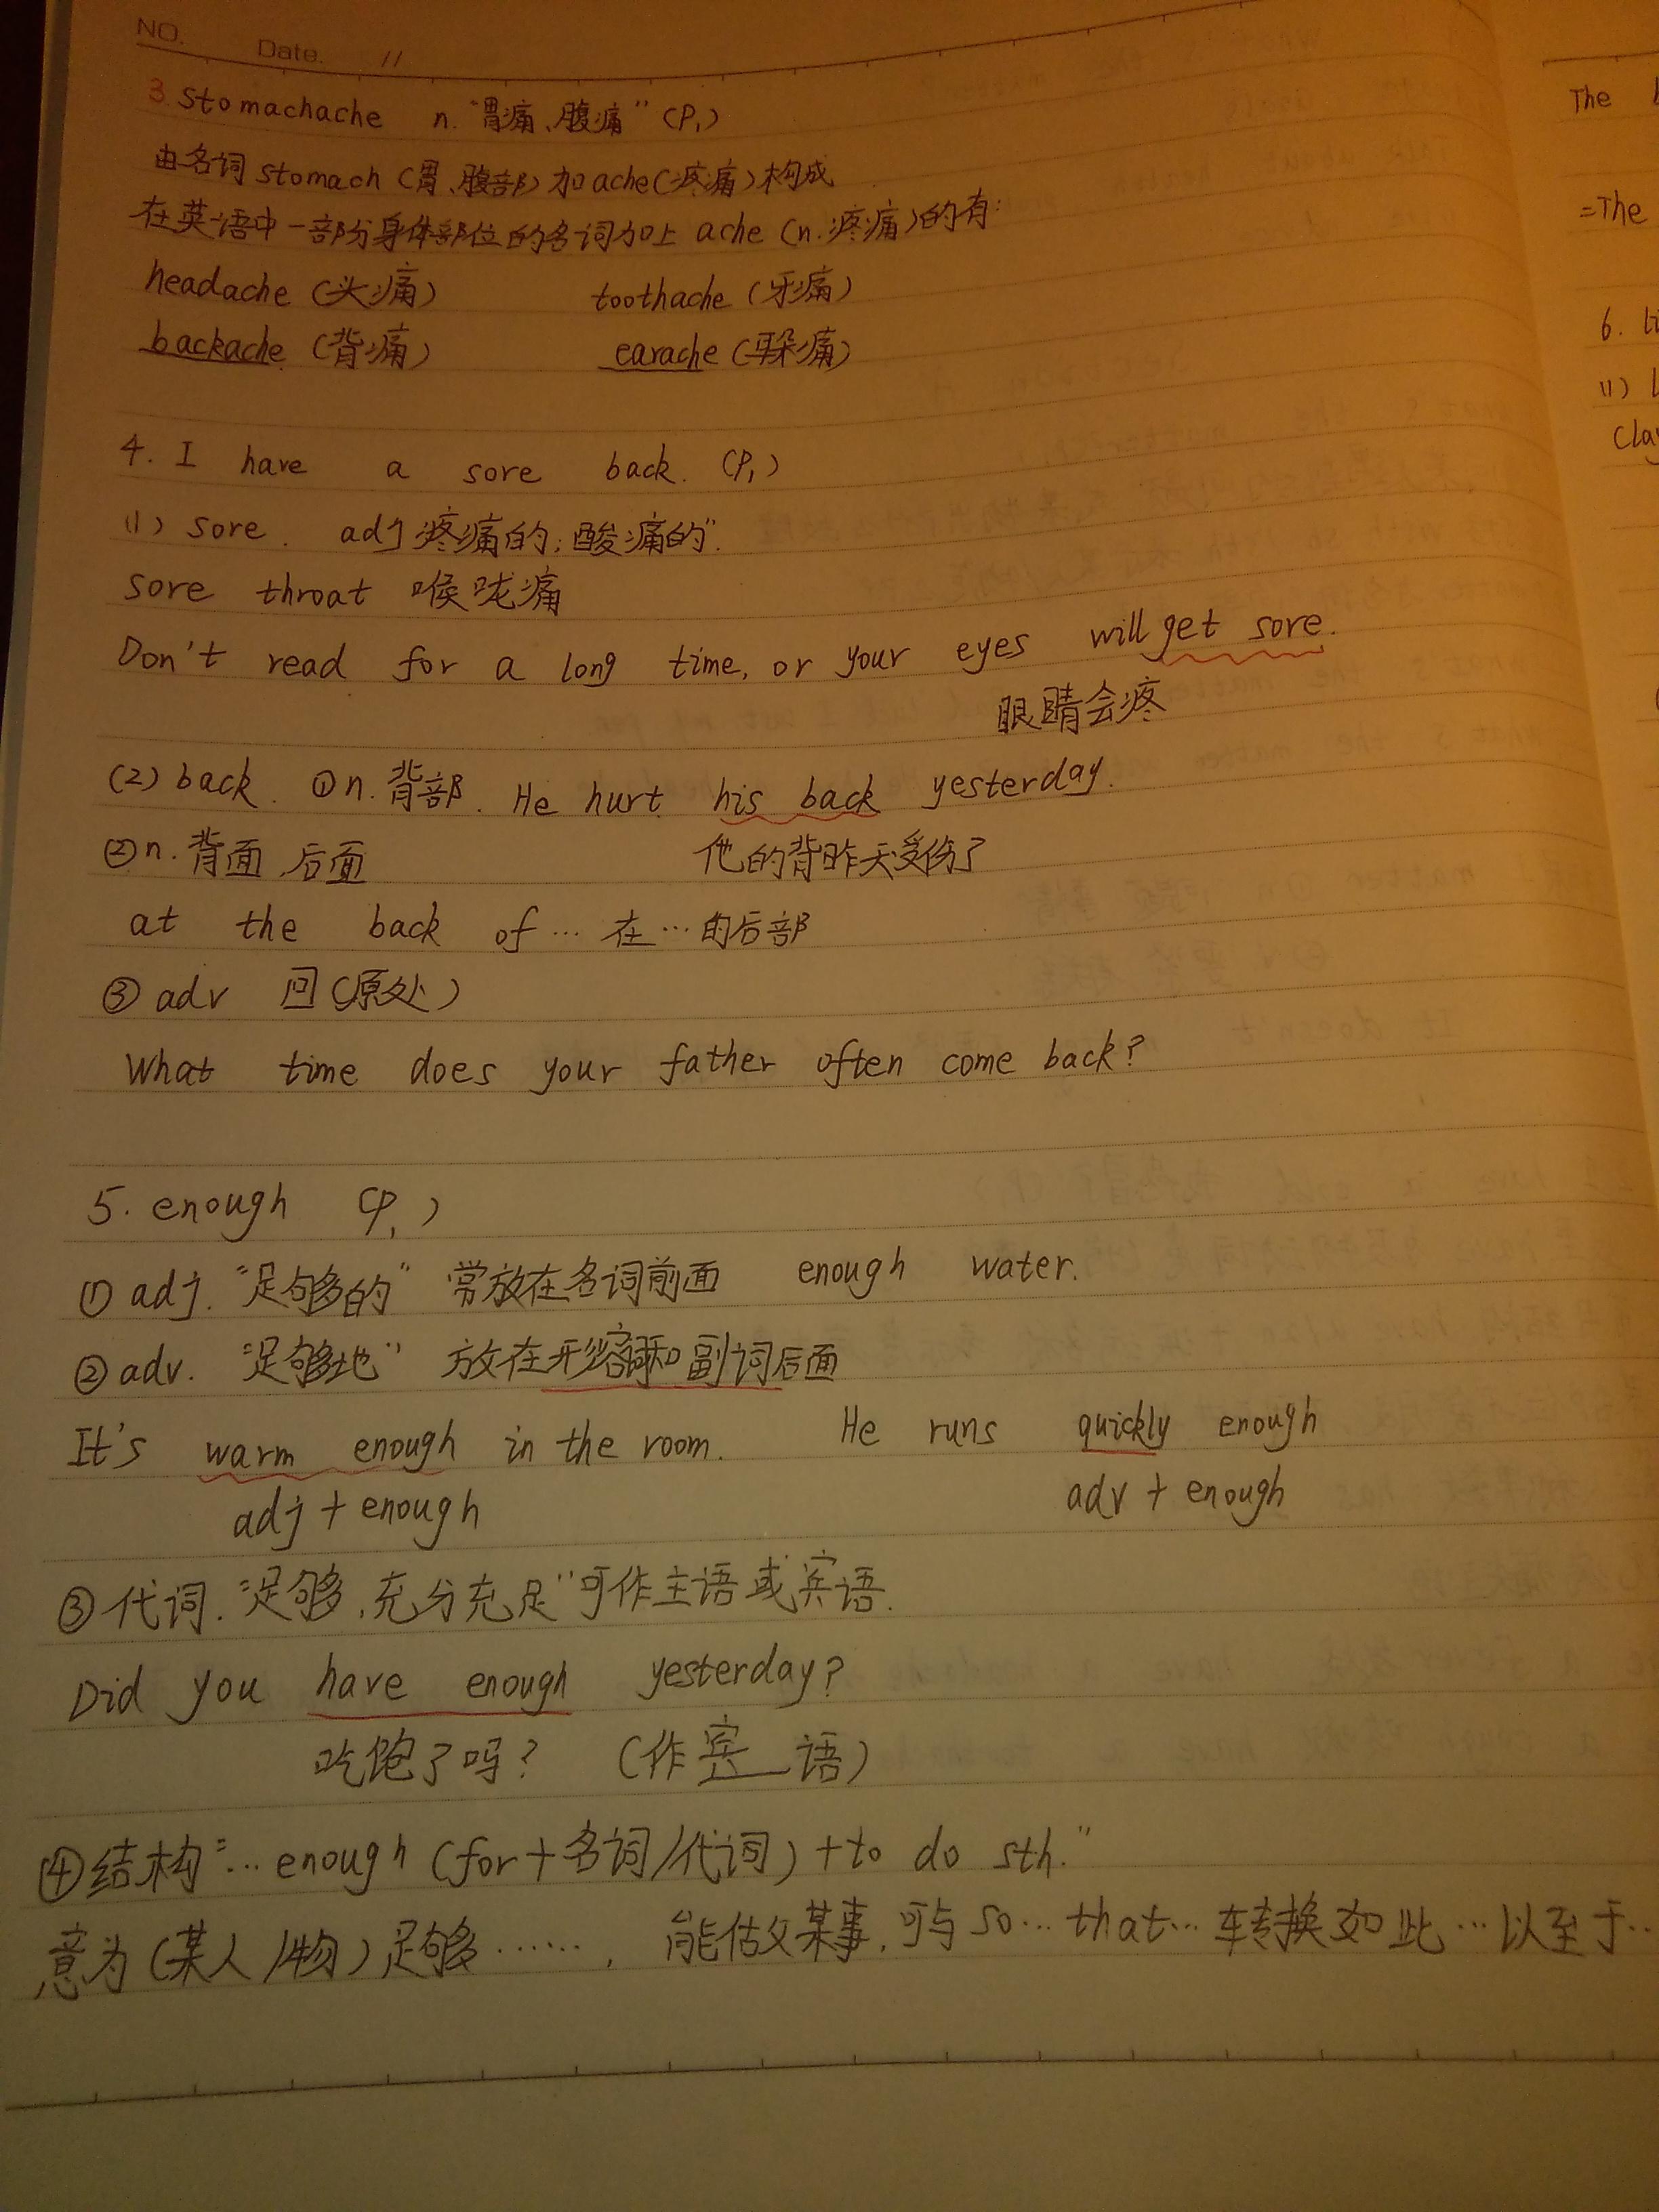 NO.    Date.    //
3. Stomachache  n. "胃痛、腹痛" (P1)
由名词 stomach (胃、腹部) 加 ache (疼痛) 构成
在英语中一部分身体部位的名词加上 ache (n.疼痛) 的有:
headache (头痛)    toothache (牙痛)
backache (背痛)    earache (耳朵痛)
4. I have a sore back. (P1)
(1) sore. adj 疼痛的;酸痛的".
sore throat 喉咙痛
Don't read for a long time, or your eyes will get sore.
眼睛会疼
(2) back. ①n. 背部. He hurt his back yesterday.
②n. 背面,后面    他的背昨天受伤了
at the back of … 在…的后部
③ adv 回(原处)
What time does your father often come back?
5. enough (P1)
① adj. "足够多的" 常放在名词前面  enough water.
② adv. "足够地" 放在形容词和副词后面
It's warm enough in the room.    He runs quickly enough
adj + enough    adv + enough
③代词. "足够,充分充足" 可作主语或宾语.
Did you have enough yesterday?
吃饱了吗? (作宾语)
④结构"…enough (for+名词/代词) +to do sth."
意为(某人/物)足够……, 能做某事,可与so…that…转换如此…以至于…
The
=The
6. li
(1) l
Clay